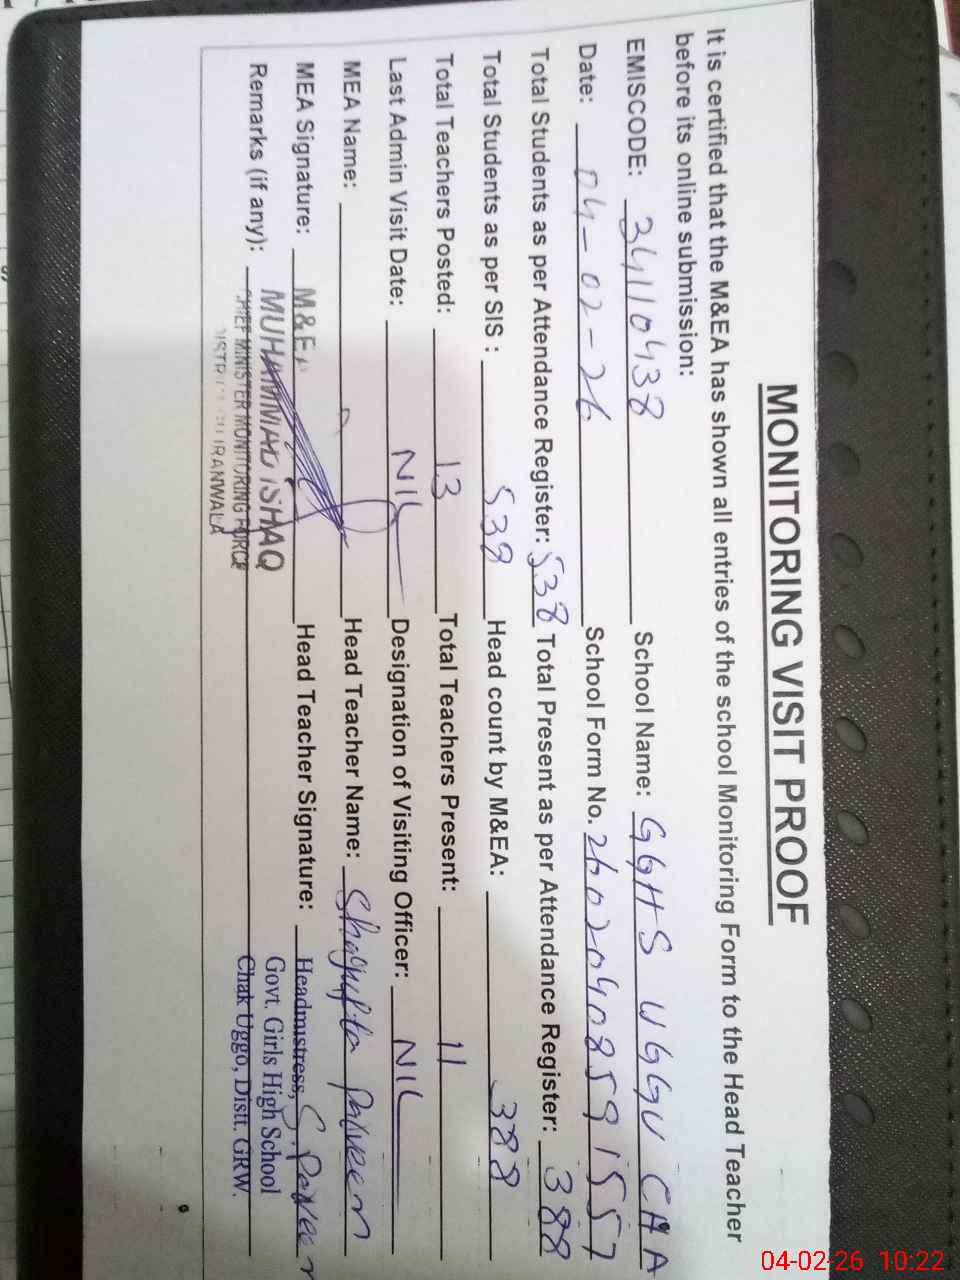 MONITORING VISIT PROOF
It is certified that the M&EA has shown all entries of the school Monitoring Form to the Head Teacher
before its online submission:
EMISCODE: 34110438 School Name: GGHS UGGU CHA
Date: 04-02-26 School Form No. 26020408591557
Total Students as per Attendance Register: 538 Total Present as per Attendance Register: 388
Total Students as per SIS : 538 Head count by M&EA: 388
Total Teachers Posted: 13 Total Teachers Present: 11
Last Admin Visit Date: NIL Designation of Visiting Officer: NIL
MEA Name: Head Teacher Name: Shagufta Parveen
MEA Signature: M&EA Head Teacher Signature: Headmistress, S. Parveen
Remarks (if any): MUHAMMAD ISHAQ Govt. Girls High School
CHIEF MINISTER MONITORING FORCE Chak Uggo, Distt. GRW.
DISTRICT GUJRANWALA
04-02-26 10:22